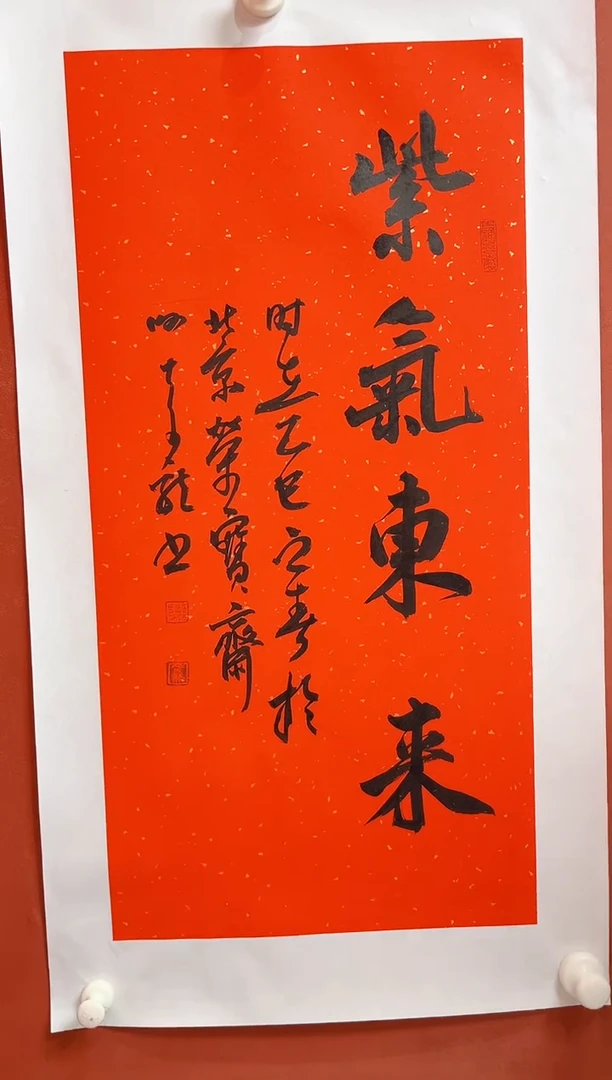 紫氣東来
时在乙巳之春於
北京榮寳齋
书